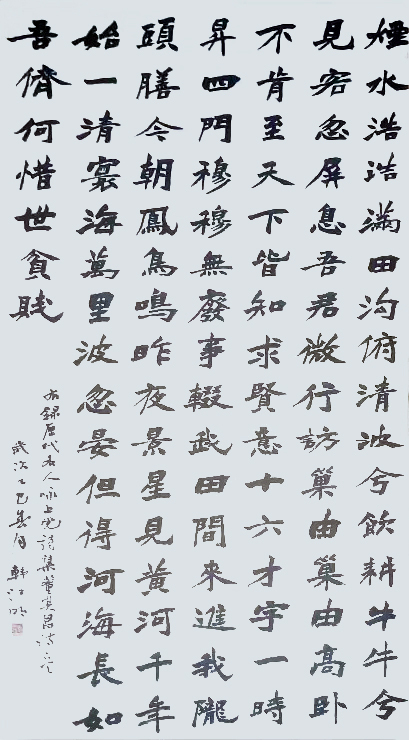 煙水浩浩滿田沟俯清波兮飲耕牛牛兮
見客忽屏息吾君微行訪巢由巢由高卧
不肯至天下皆知求賢意十六才字一時
昇四門穆穆無廢事輟政田間來進我隴
頭膳今朝鳳鳥鳴昨夜景星見黃河千年
始一清寰海萬里波忽晏但得河海長如
吾儕何惜世貧賤
右錄歷代名人咏上党詩集董英昌詩
歲次乙巳春月韩江